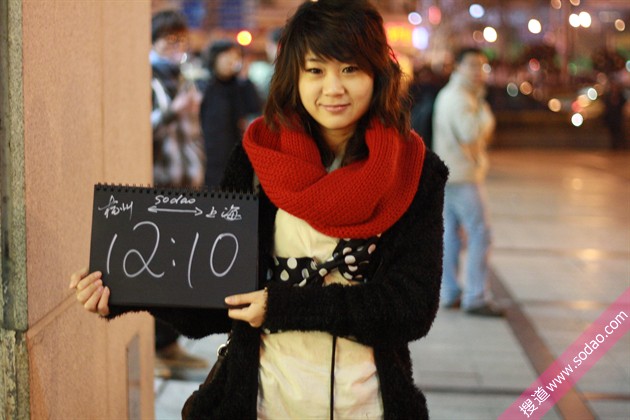 sodao
杭州 ⟷ 上海
12:10
搜道 www.sodao.com